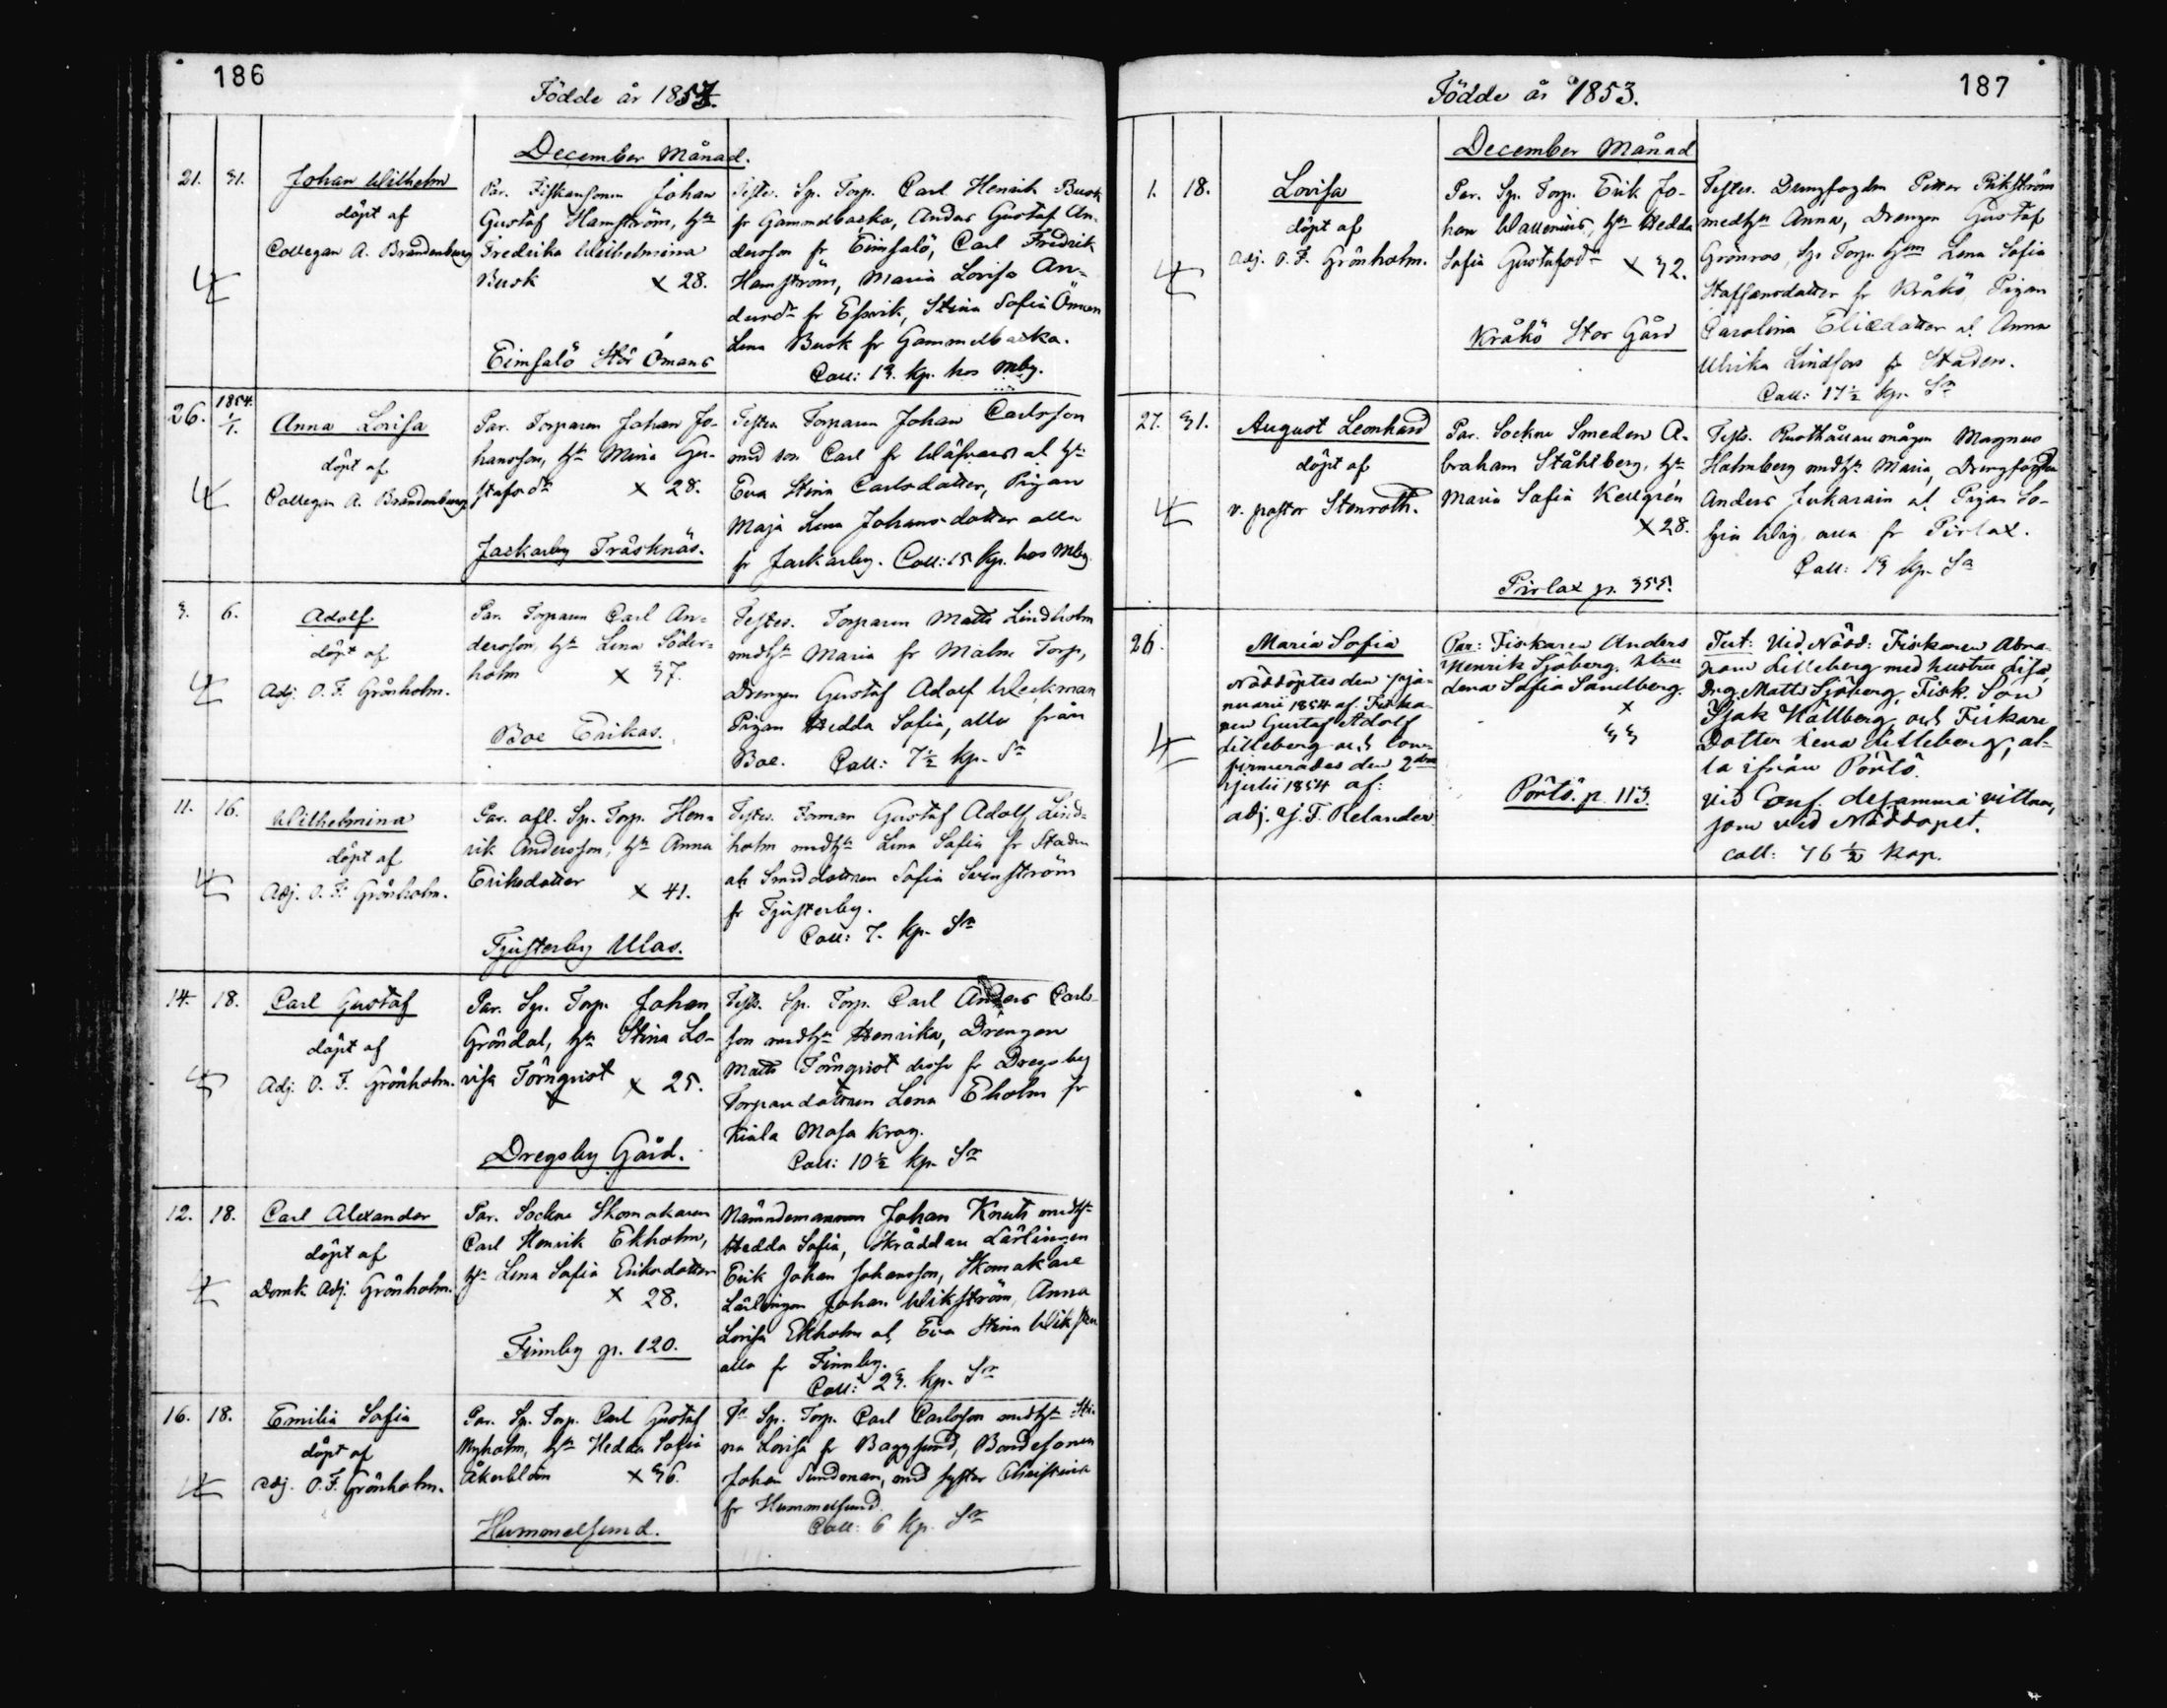 186
Födde år 1853.
December Månad.
21. 31.
Johan Wilhelm
döpt af
Collegan A. Brandenburg
Par. Fiskaresonen Johan
Gustaf Hamström, h:n
Fredrika Wilhelmina
Busk × 28.
Eimsalö Stor Ömans
Testes. Sp. Torp. Carl Henrik Busk
fr Gammelbacka, Anders Gustaf An-
dersson fr Eimsalö, Carl Fredrik
Hamström, Maria Lovisa An-
dersd:r fr Essvik, Stina Sofia Öman
Lena Busk fr Gammelbacka.
Coll: 13. kp. hos Mby.
26. 1854. 1/1.
Anna Lovisa
döpt af
Collegan A. Brandenburg
Par. Torparen Johan Jo-
hansson, h:n Mina Gu-
stafsd:r × 28.
Jackarby Träsknäs.
Testes Torparen Johan Carlsson
med son Carl fr
Eva Stina Carlsdatter, Pigan
Maja Lena Johansdotter alla
fr Jackarby. Coll: 15 kp. hos Mby.
3. 6.
Adolf
döpt af
Adj. O. F. Grönholm.
Par. Torparen Carl An-
dersson, h:n Lena Söder-
holm × 37.
Boe Erikas.
Testes. Torparen Matts Lindholm
med h:n Maria fr Malm Torp,
Drengen Gustaf Adolf Weckman
Pigan Hedda Sofia, alla från
Boe. Coll: 7½ kp. S:r
11. 16.
Wilhelmina
döpt af
Adj. O. F. Grönholm.
Par. afl. Sp. Torp. Hen-
rik Andersson, h:n Anna
Eriksdatter × 41.
Tjusterby Ulas.
Testes. Forman Gustaf Adolf Lind-
holm med h:n Lena Sofia fr Staden
ah Smeddottren Sofia Svenström
fr Tjusterby.
Coll: 7. kp. S:r
14. 18.
Carl Gustaf
döpt af
Adj. O. F. Grönholm.
Par. Sp. Torp. Johan
Gröndal, h:n Stina Lo-
visa Törnqvist × 25.
Dregsby Gård.
Testes. Sp. Torp. Carl Anders Carls-
son med h:n Henrika, Drengen
Matts Törnqvist desse fr Dregsby
Torparedottren Lena Ekholm fr
Kiala Mosa krog.
Coll: 10½ kp. S:r
12. 18.
Carl Alexander
döpt af
Domk. Adj. Grönholm.
Par. Sockne Skomakaren
Carl Henrik Ekholm,
h:n Lena Sofia Eriksdotter
× 28.
Finnby p. 120.
Nämndemannen Johan Knuts med h:n
Hedda Sofia, Skräddare Lärlingen
Erik Johan Johansson, Skomakare
Lärlingen Johan Wikström, Anna
Lovisa Ekholm ah Eva Stina
alla fr Finnby.
Coll: 23. kp. S:r
16. 18.
Emilia Sofia
döpt af
adj. O. F. Grönholm.
Par. Sp. Torp. Carl Gustaf
Nyholm, h:n Hedda Sofia
Åkerblom × 36.
Hummelsund.
T:s Sp. Torp. Carl Carlsson med h:n Sti-
na Lovisa fr Baggsund, Bondesonen
Johan Sundman, med syster Christina
fr Hummelsund.
Coll: 6 kp. S:r
187
Födde år 1853.
December Månad
1. 18.
Lovisa
döpt af
Adj. O. F. Grönholm.
Par. Sp. Torp. Erik Jo-
han Wallenius, h:n Hedda
Sofia Gustafsd:r × 32.
Kråkö Stor Gård
Testes. Drengfogden Petter Rikström
med h:n Anna, Drengen Gustaf
Grönroos, Sp. Torp. Lena Sofia
Staffansdatter fr Kråkö, Pigan
Carolina Eliædatter ah Anna
Ulrika Lindfors fr Staden.
Coll: 17½ kp. S:r
27. 31.
August Leonhard
döpt af
v. pastor Stenroth.
Par. Sockne Smeden A-
braham Ståhlberg, h:n
Maria Sofia Kellgrén
× 28.
Pirlax p. 355.
Testes. Rusthållare mågen Magnus
Holmberg med h:n Maria, Drengfogden
Anders Jukarain ah Pigan So-
fia Wiig alla fr Pirlax.
Coll: 13 kp. S:r
26.
Maria Sofia
Nöddöptes den 7 ja-
nuarii 1854 af Fiska-
ren Gustaf Adolf
Lilleberg och con-
firmerades den 2dra
julii 1854 af:
adj. J. F. Relander.
Par: Fiskaren Anders
Henrik Sjöberg, Hstru
Lena Sofia Sandberg.
×
33
Pörtö. p. 113.
Test: Vid Nödd: Fiskaren Abra-
ham Lilleberg med hustru Lisa,
Drg. Matts Sjöberg, Fisk. Son
Isak Källberg, och Fiskare
Dotter Lena Lilleberg, al-
la ifrån Pörtö.
Vid Conf. desamma vittnen,
som vid Nöddopet.
Coll: 76½ kop.